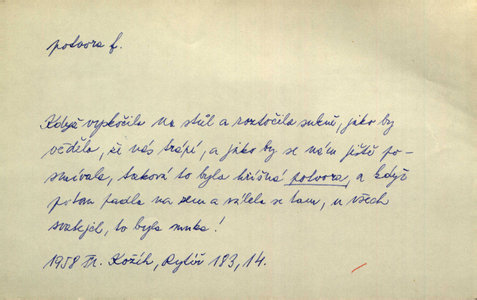 potvora f.
Když vyskočila na stůl a roztočila sukně, jako by
věděla, že nás trápí, a jako by se nám ještě po-
smívala, taková to byla hříšná potvora, a když
pitom padla na zem a válela se tam, u všech
svatejch, to byla muka!
1958 Fr. Kožík, Rytíř 183, 14.